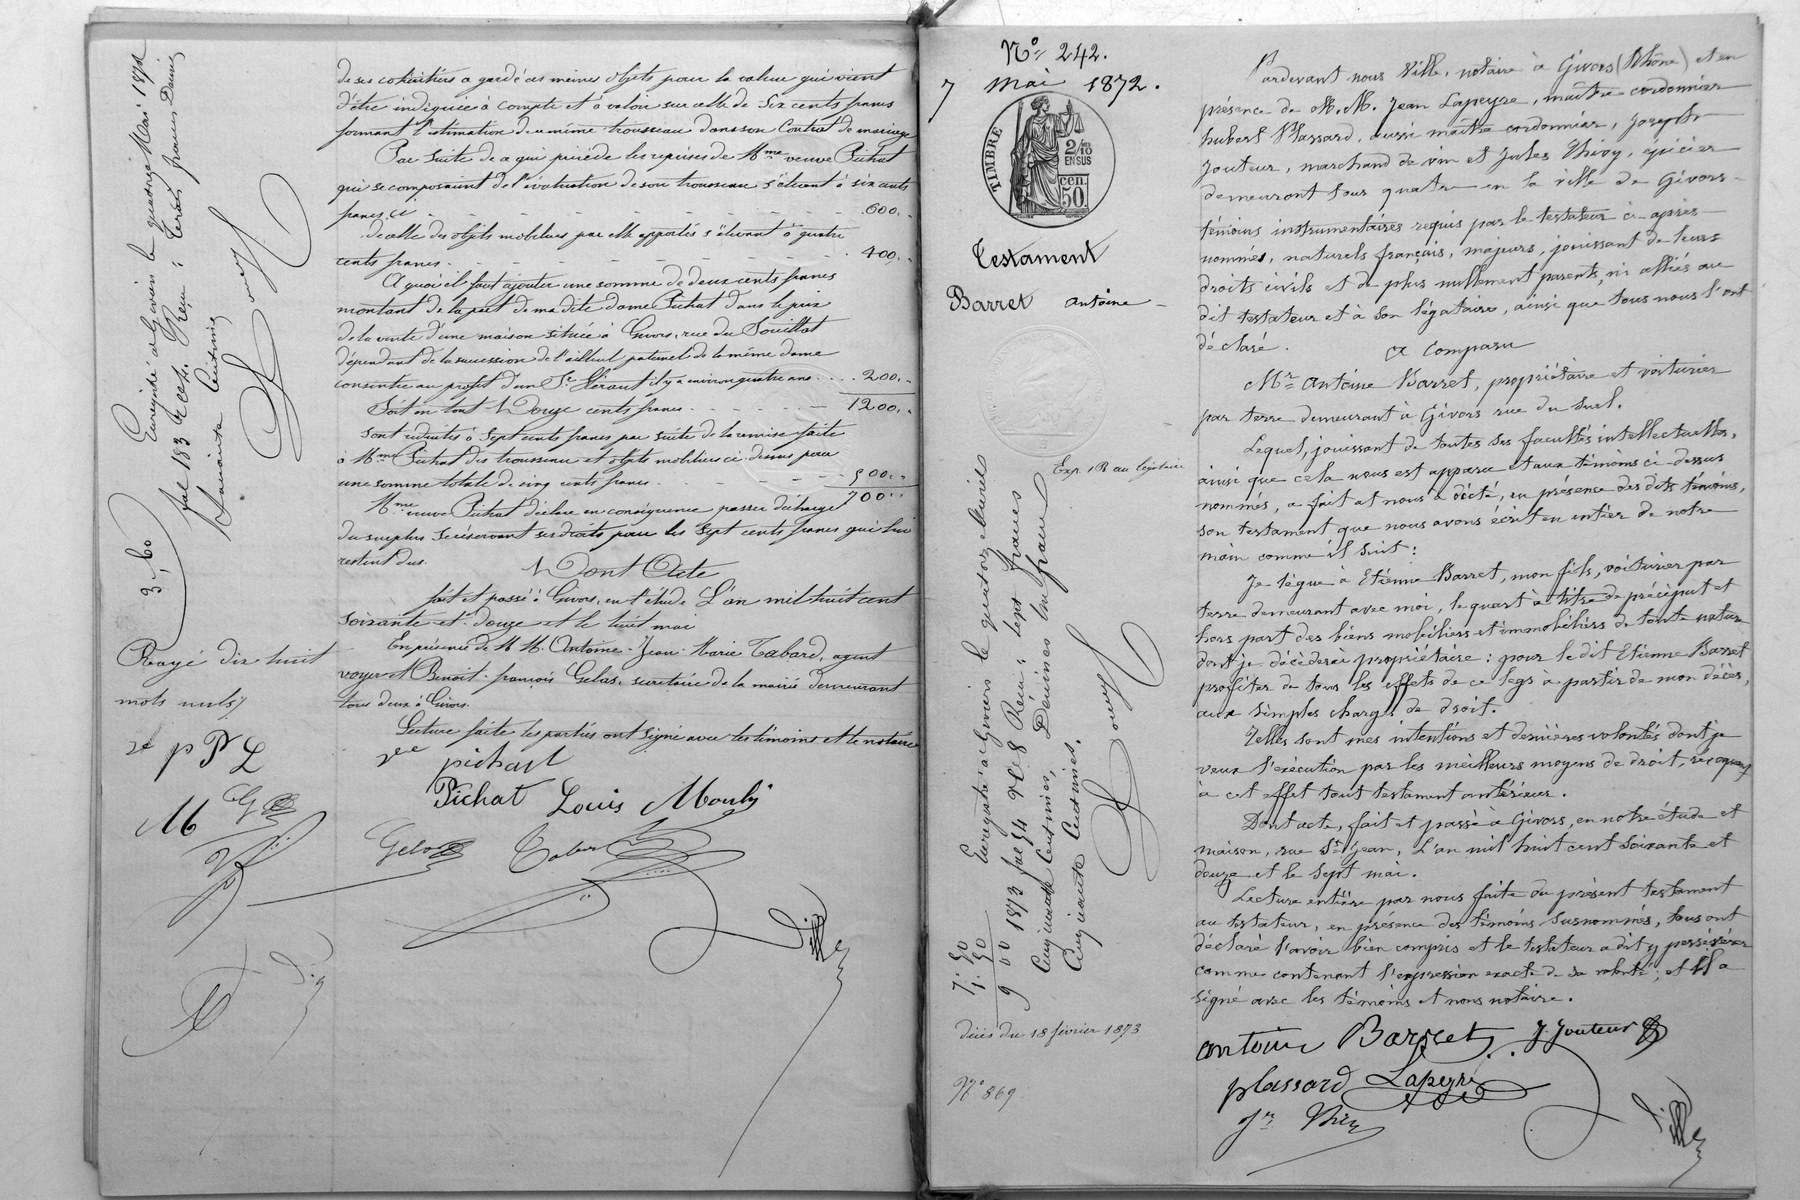 de ses cohéritiers a gardé ces mêmes objets pour la valeur qui vient
d'être indiquée à compte et à valoir sur celle de Six cents francs
formant l'estimation du même trousseau dans son Contrat de mariage
Par suite de ce qui précède les reprises de Mme veuve Pichat
qui se composaient de l'évaluation de son trousseau s'élevant à six cents
francs, ci 600,-
de celle des objets mobiliers par elle apportés s'élevant à quatre
cents francs. 400,-
A quoi il faut ajouter une somme de deux cents francs
montant de la part de ma dite dame Pichat dans le prix
de la vente d'une maison située à Givors, rue du Souillat
dépendant de la succession de l'aïeul paternel de la même dame
consentie au profit d'un Sr Héraut il y a environ quatre ans 200,-
Soit en tout Douze cents francs 1200,-
sont réduites à Sept cents francs par suite de la remise faite
à Mme Pichat des trousseau et objets mobiliers ci-dessus pour
une somme totale de cinq cents francs 500,-
700,-
Mme veuve Pichat déclare en conséquence passer décharge
du surplus se réservant ses droits pour les Sept cents francs qui lui
restent dus.
Dont Acte
fait et passé à Givors, en l'étude L'an mil huit cent
soixante et douze et le huit mai
En présence de M.M. Antoine-Jean-Marie Tabard, agent
voyer et Benoit-françois Gelas, secrétaire de la mairie demeurant
tous deux à Givors.
Lecture faite les parties ont signé avec les témoins et le notaire
Vve pichat
Pichat Louis Mouly
Gelas Tabard
Ville
Enregistré à Givors le quatorze Mai 1872
fol 183 Reçu: trois francs Décimes
Soixante Centimes
3,60
Rayé dix huit
mots nuls
ve p P L
M G
Nº 242.
7 Mai 1872.
TIMBRE
2/10
EN SUS
50 cen.
Testament
Barret antoine
Exp. 1R au légataire
Enregistré à Givors le quatorze Mai
1873 fol 54 Rec. 8 Reçu: sept francs
Cinquante Centimes, Décimes Un franc
Cinquante Centimes.
7. 50
1. 50
9 00
décès du 18 février 1873
Nº 869
Pardevant nous Ville, notaire à Givors (Rhône) et en
présence de M.M. Jean Lapeyre, maître cordonnier
hubert Plassard, aussi maître cordonnier, Joseph
Jouteur, marchand de vin et Jules Thivy, épicier
demeurant tous quatre en la ville de Givors-
témoins instrumentaires requis par le testateur ci-après
nommés, naturels français, majeurs, jouissant de leurs
droits civils et de plus nullement parents, ni alliés au
dit testateur et à son légataire, ainsi que tous nous l'ont
déclaré.
a comparu
Mr Antoine Barret, propriétaire et voiturier
par terre demeurant à Givors rue du Suel.
Lequel, jouissant de toutes ses facultés intellectuelles,
ainsi que cela nous est apparu et aux témoins ci-dessus
nommés, a fait et nous a dicté, en présence des dits témoins,
son testament que nous avons écrit en entier de notre
main comme il suit:
Je lègue à Etienne Barret, mon fils, voiturier par
terre demeurant avec moi, le quart à titre de préciput et
hors part des biens mobiliers et immobiliers de toute nature
dont je décèderai propriétaire: pour le dit Etienne Barret
profiter de tous les effets de ce legs à partir de mon décès,
aux simples charges de droit.
Telles sont mes intentions et dernières volontés dont je
veux l'exécution par les meilleurs moyens de droit, révoquant
à cet effet tout testament antérieur.
Dont acte, fait et passé à Givors, en notre étude et
maison, rue St Jean, L'an mil huit cent soixante et
douze et le Sept mai.
Lecture entière par nous faite du présent testament
au testateur, en présence des témoins susnommés, tous ont
déclaré l'avoir bien compris et le testateur a dit y persévérer
comme contenant l'expression exacte de sa volonté; et il a
signé avec les témoins et nous notaire.
antoine Barret J. Jouteur
plassard Lapeyre
Jes Thivy
Ville